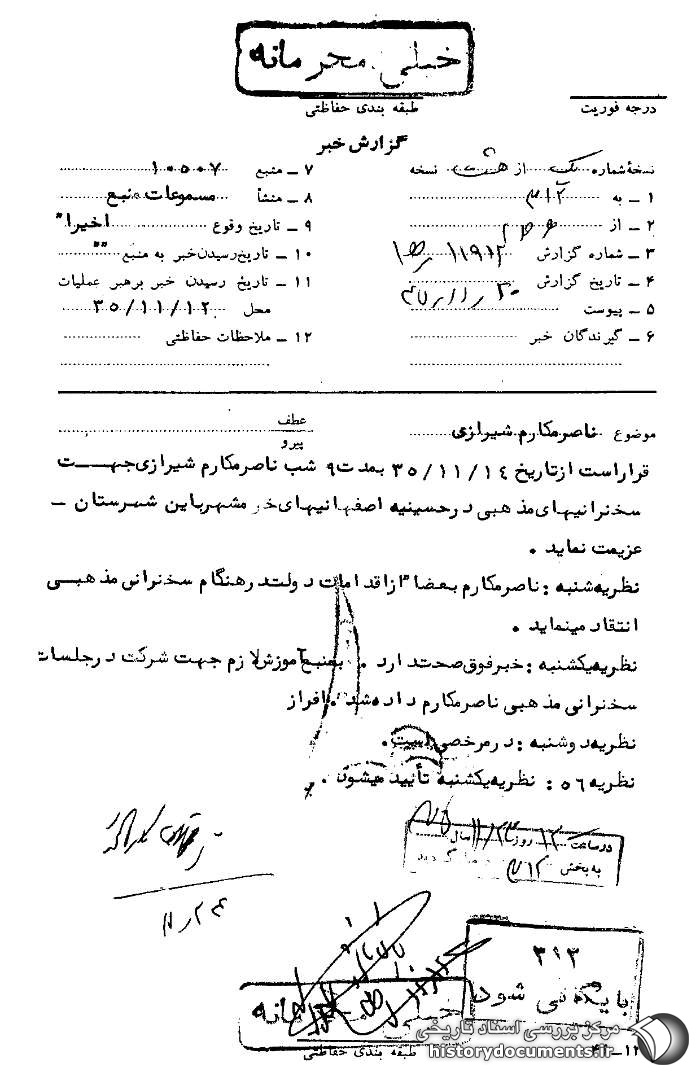 خیلی محرمانه
درجه فوریت
طبقه بندی حفاظتی
گزارش خبر
نسخه شماره یک از هشت نسخه
۱ ـ به
۲ ـ از
۳ ـ شماره گزارش ۱۱۹۱۲
۴ ـ تاریخ گزارش
۵ ـ پیوست
۶ ـ گیرندگان خبر
۷ ـ منبع ۱۰۵۰۷
۸ ـ منشأ مسموعات منبع
۹ ـ تاریخ وقوع اخیرا"
۱۰ ـ تاریخ رسیدن خبر به منبع ""
۱۱ ـ تاریخ رسیدن خبر برهبر عملیات
محل ۳۵/۱۱/۱۲
۱۲ ـ ملاحظات حفاظتی
موضوع ناصرمکارم شیرازی
عطف
پیرو
قراراست ازتاریخ ۳۵/۱۱/۱٤ بمدت ۹ شب ناصرمکارم شیرازی جهت
سخنرانیهای مذهبی درحسینیه اصفهانیهای خرمشهرباین شهرستان ـ
عزیمت نماید .
نظریه شنبه : ناصرمکارم بعضا" ازاقدامات دولت درهنگام سخنرانی مذهبی
انتقاد مینماید .
نظریه یکشنبه : خبرفوق صحت دارد . بمنبع آموزش لازم جهت شرکت درجلسات
سخنرانی مذهبی ناصرمکارم داده شد . افراز
نظریه دوشنبه : درمرخصی است .
نظریه ٥٦ : نظریه یکشنبه تأیید میشود .
درساعت ۱۲ روز سال
به بخش ۳۱۲
۳۱۳
بایگانی شود
خیلی محرمانه
طبقه بندی حفاظتی
مرکز بررسی اسناد تاریخی
historydocuments.ir